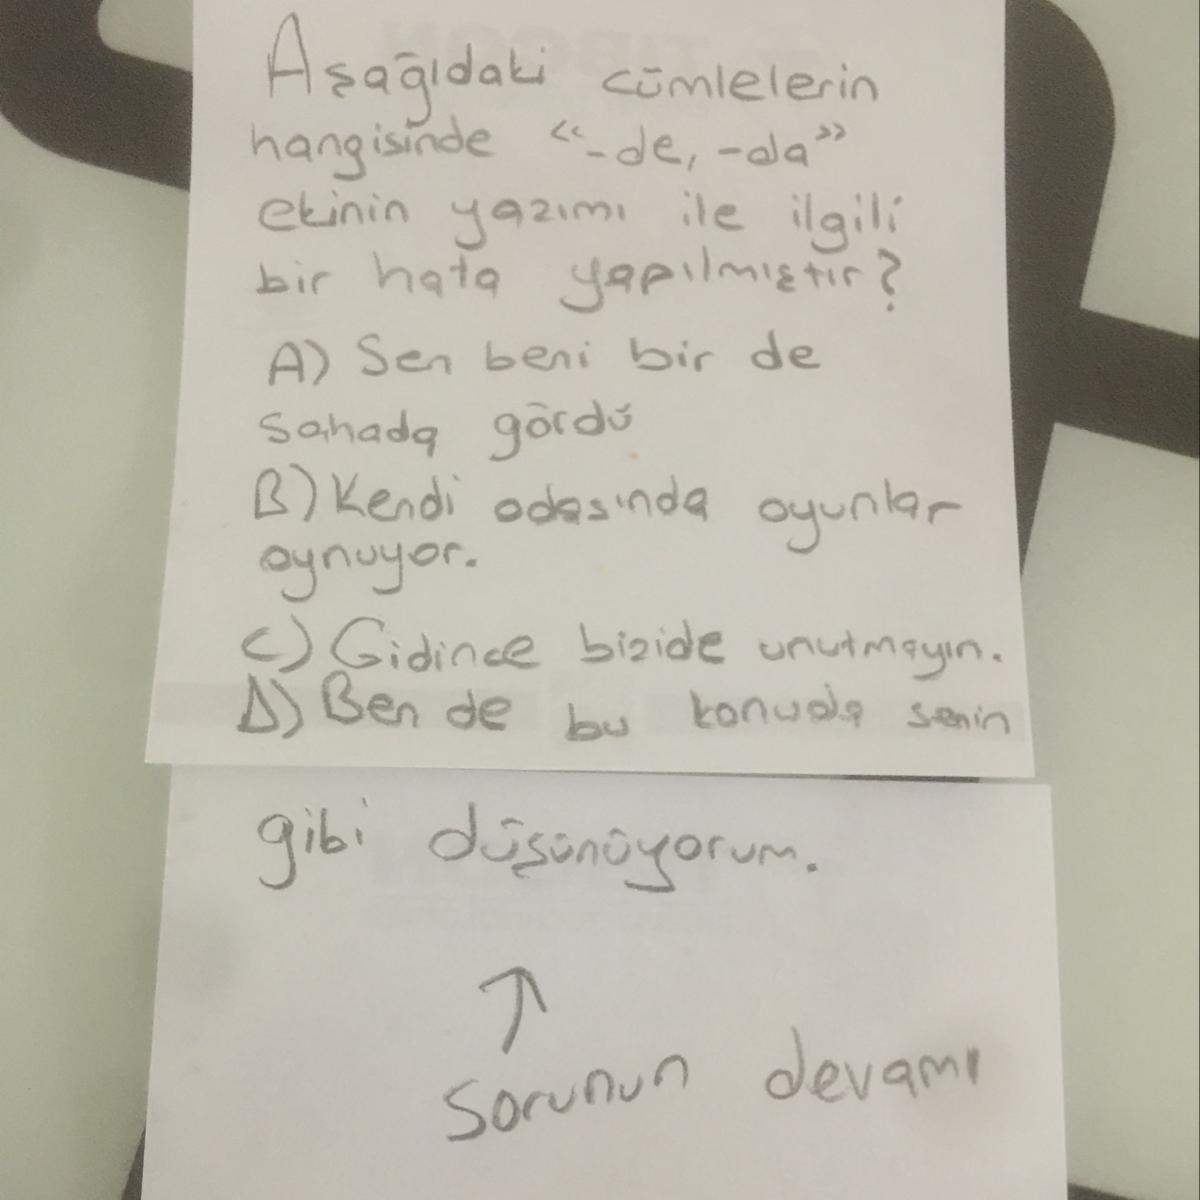 Aşağıdaki cümlelerin
hangisinde "-de, -da"
ekinin yazımı ile ilgili
bir hata yapılmıştır?
A) Sen beni bir de
sahada gördü
B) Kendi odasında oyunlar
oynuyor.
C) Gidince bizide unutmayın.
D) Ben de bu konuda senin
gibi düşünüyorum.
↑
Sorunun devamı